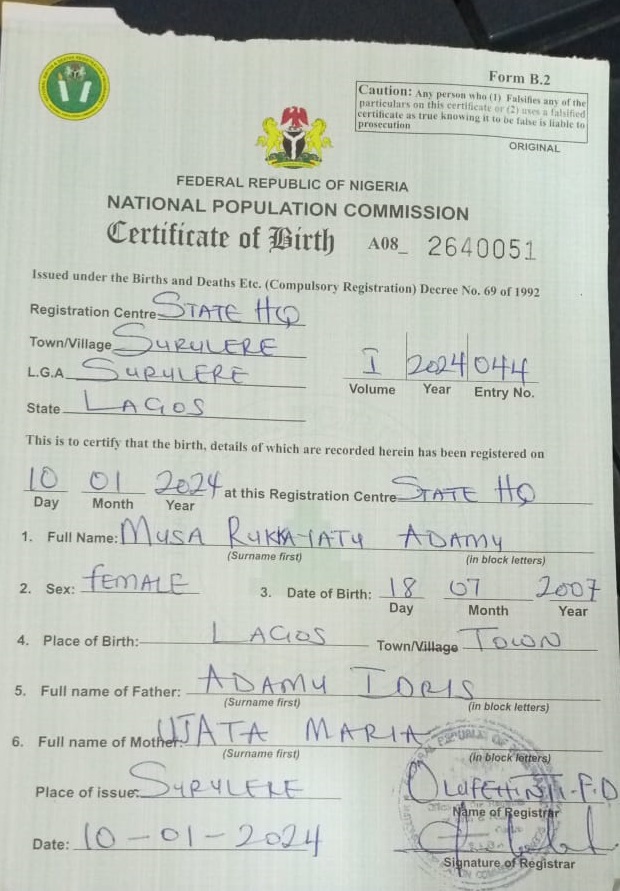 Form B.2
Caution: Any person who (1) Falsifies any of the
particulars on this certificate or (2) uses a falsified
certificate as true knowing it to be false is liable to
prosecution
ORIGINAL
FEDERAL REPUBLIC OF NIGERIA
NATIONAL POPULATION COMMISSION
Certificate of Birth A08_ 2640051
Issued under the Births and Deaths Etc. (Compulsory Registration) Decree No. 69 of 1992
Registration Centre STATE HQ
Town/Village SURULERE
L.G.A SURULERE
I 2024 044
Volume Year Entry No.
State LAGOS
This is to certify that the birth, details of which are recorded herein has been registered on
10 01 2024 at this Registration Centre STATE HQ
Day Month Year
1. Full Name: MUSA RUKKAYATU ADAMU
(Surname first) (in block letters)
2. Sex: FEMALE 3. Date of Birth: 18 07 2007
Day Month Year
4. Place of Birth: LAGOS Town/Village TOWN
5. Full name of Father: ADAMU IDRIS
(Surname first) (in block letters)
6. Full name of Mother: MARIA
(Surname first) (in block letters)
Place of issue: SURULERE
Name of Registrar
Date: 10-01-2024
Signature of Registrar